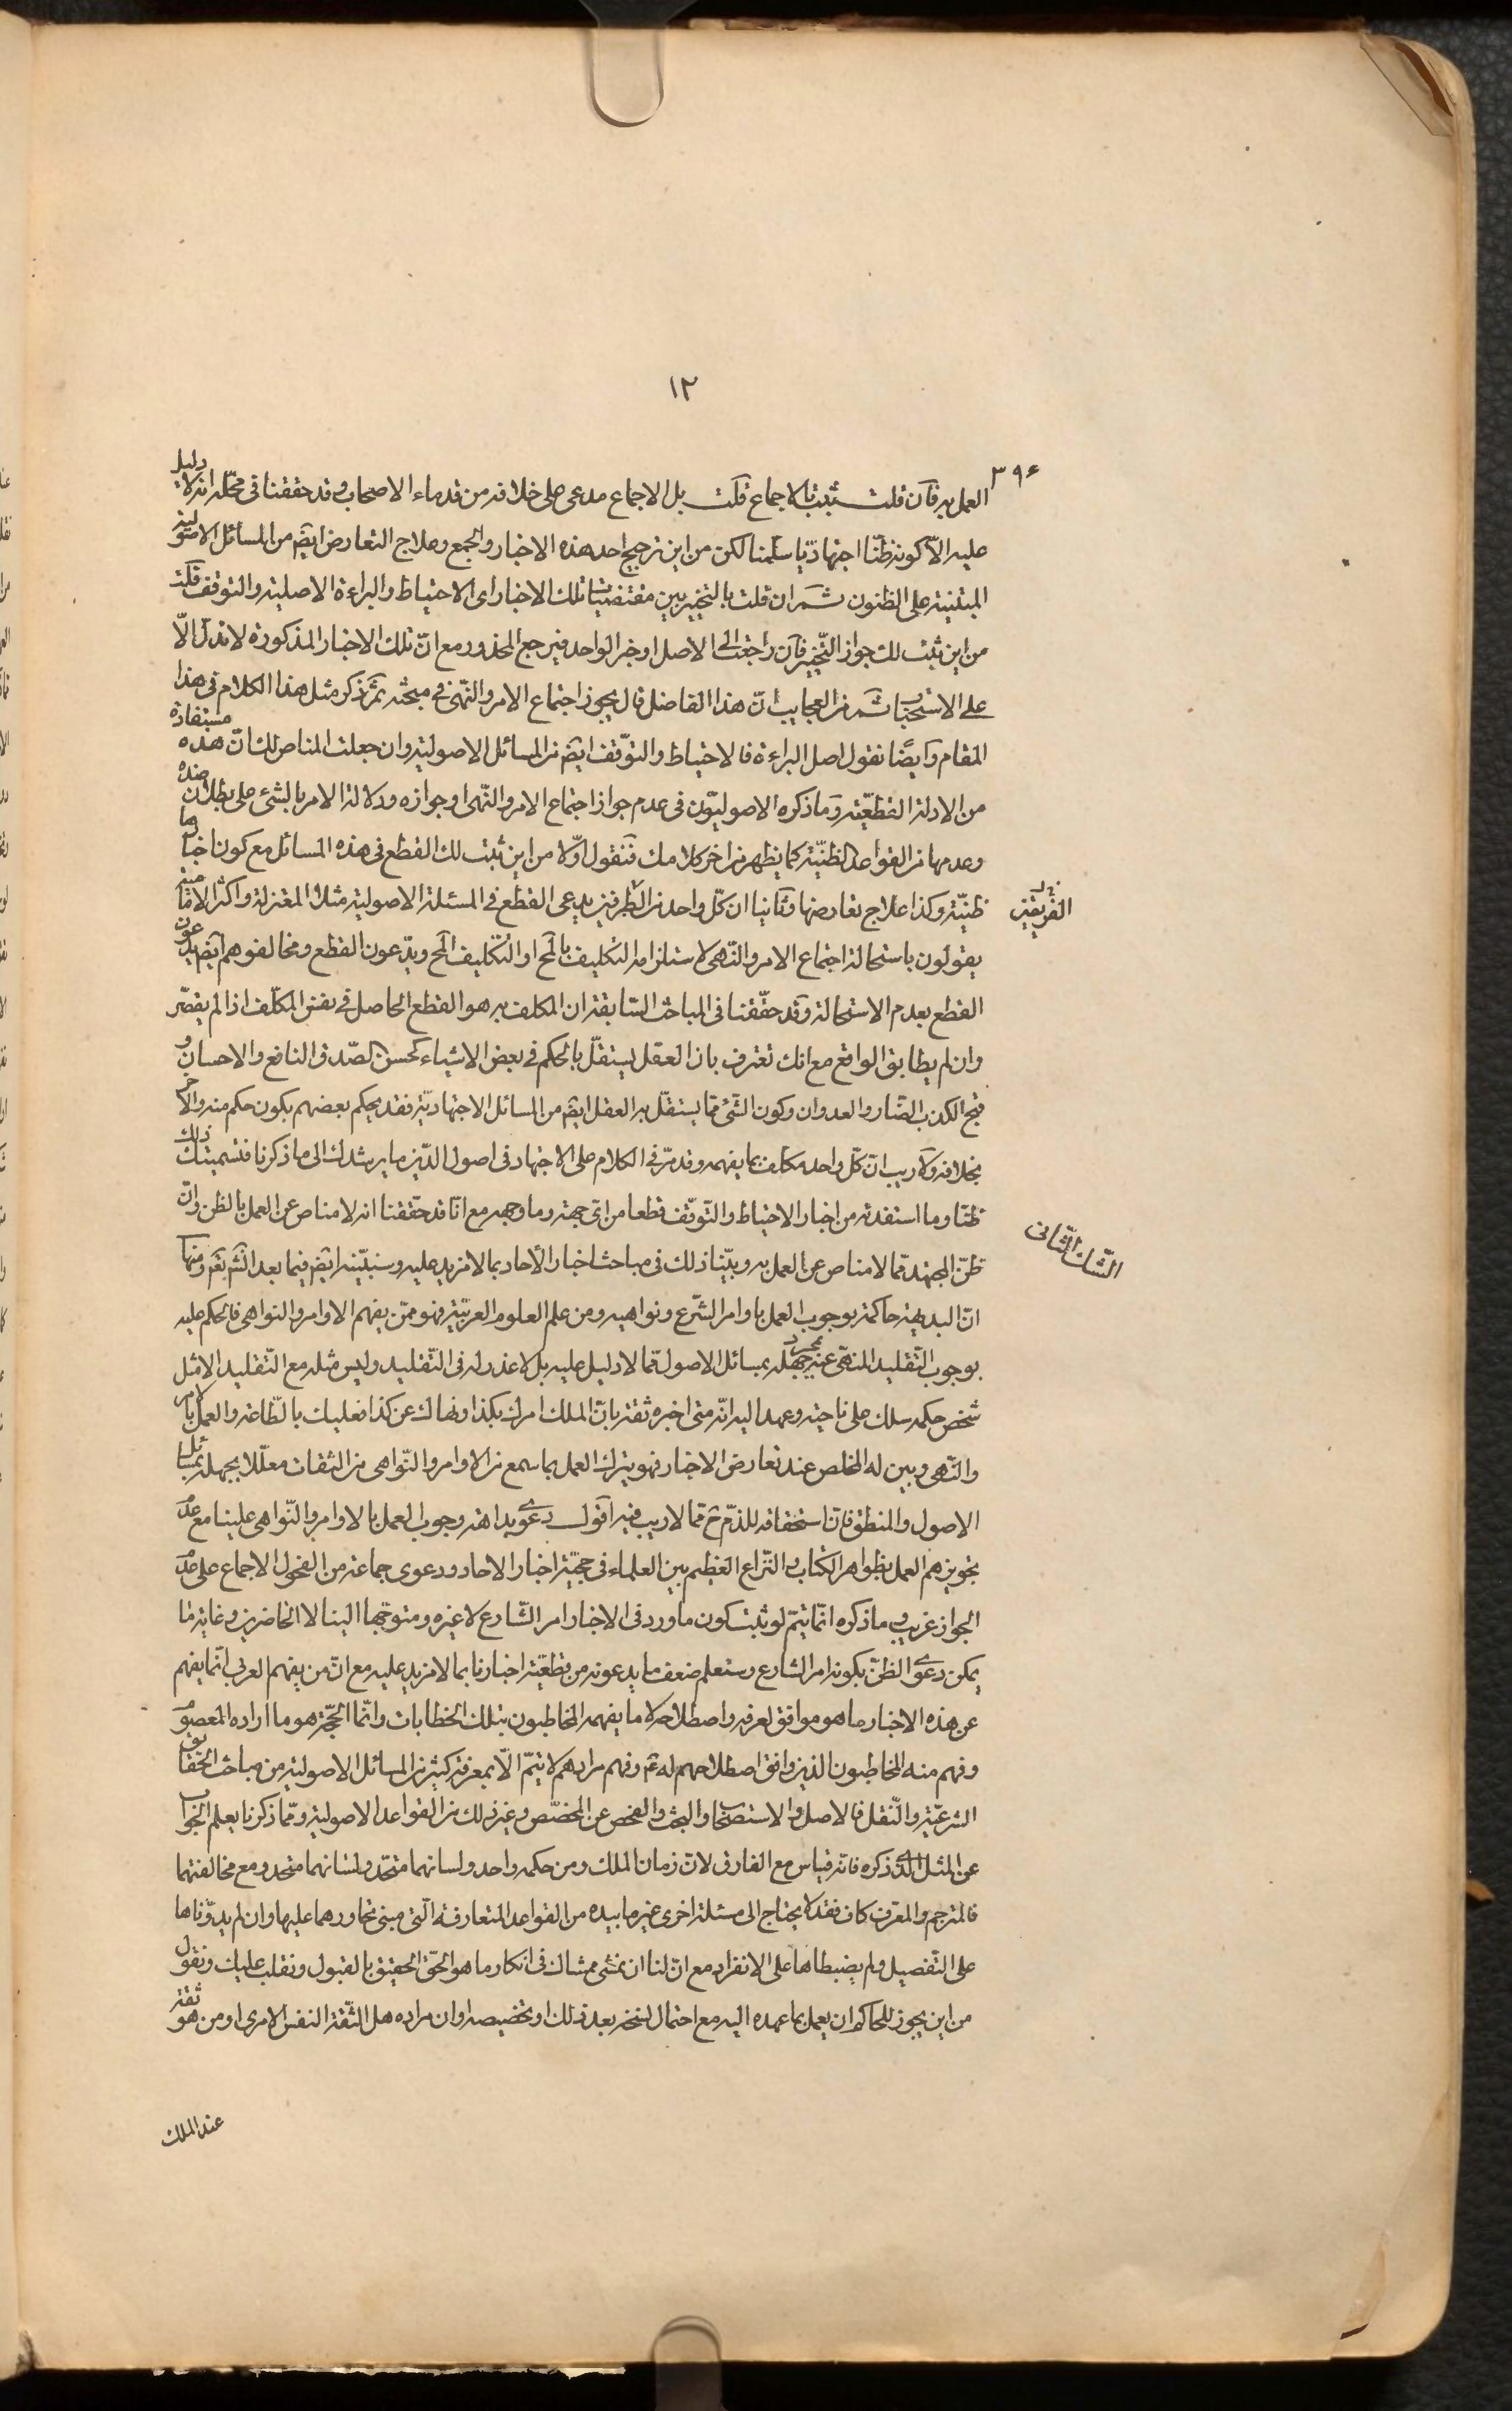 ١٢
٣٩٤
العمل به فان قلت ثبت بالاجماع قلت بل الاجماع مدعى على خلافه من قدماء الاصحاب وقد حققنا فى محله انه لا دليل
عليه الّا كونه ظنّا اجتهاديّا سلّمنا لكن من اين ترجيح احد هذه الاخبار والجمع وعلاج التعارض ايضا من المسائل الاصولية
المبتنية على الظنون ثمّ ان قلت بالتخيير بين مقتضيات تلك الاخبار اى الاحتياط والبراءة الاصلية والتوقف قلت
من اين ثبت لك جواز التّخيير فان راجعت الى الاصل او خبر الواحد فيرجع المحذور مع انّ تلك الاخبار المذكورة لا تدل الّا
على الاستحباب ثمّ من العجايب انّ هذا الفاضل قال بجواز اجتماع الامر والنّهى فى مبحثه ثمّ ذكر مثل هذا الكلام فى هذا
المقام وايضًا نقول اصل البراءة فالاحتياط والتوّقف ايضا من المسائل الاصولية وان جعلت المناص لك انّ هذه مستفادة
من الادلة القطعيّة وما ذكره الاصوليّون فى عدم جواز اجتماع الامر والنّهى او جوازه ودلالة الامر بالشئ على بطلان ضده
وعدمها من القواعد الظنيّة كما يظهر من اخر كلامك فنقول اوّلا من اين ثبت لك القطع فى هذه المسائل مع كون اخبارها
ظنيّة وكذا علاج تعارضها وثانيا ان كلّ واحد من الطرفين يدعى القطع فى المسئلة الاصولية مثلا المعتزلة واكثر الامامية
الفريقين
يقولون باستحالة اجتماع الامر والنّهى لاستلزامه التكليف بالمح او التّكليف المح ويدّعون القطع ومخالفوهم ايضا يدعون
القطع بعدم الاستحالة وقد حقّقنا فى المباحث السّابقة ان المكلف به هو القطع الحاصل فى نفس المكلّف اذا لم يقصّر
وان لم يطابق الواقع مع انك تعترف بان العقل يستقلّ بالحكم فى بعض الاشياء كحسن الصّدق النافع والاحسان و
قبح الكذب الضّار والعدوان وكون الشّئ ممّا يستقلّ به العقل ايضا من المسائل الاجتهاديّة فقد يحكم بعضهم بكون حكم منه والاخر
بخلافه ولا ريب انّ كلّ واحد مكلف بما يفهمه وقد مرّ فى الكلام على الاجتهاد فى اصول الدّين ما يرشدك الى ما ذكرنا فتسميتك ذلك
ظنّا وما استفدته من اخبار الاحتياط والتّوقّف قطعا من اىّ جهة وما وجهه مع انّا قد حقّقنا انه لا مناص عن العمل بالظن وانّ
ظنّ المجتهد ممّا لا مناص عن العمل به وبيّنا ذلك فى مباحث اخبار الآحاد بما لا مزيد عليه وسنبيّنه ايضا فيما بعد انش تع ومنها
الشّك الثانى
انّ البديهة حاكمة بوجوب العمل باوامر الشّرع ونواهيه ومن علم العلوم العربيّة فهو ممّن يفهم الاوامر والنواهى فالحكم عليه
بوجوب التّقليد المنهّى عنه بمجرد جهله بمسائل الاصول ممّا لا دليل عليه بل لا عذر له فى التّقليد وليس مثله مع التّقليد الا مثل
شخص حكمه ملك على ناحية وعهد اليه انّه متى اخبره ثقة بانّ الملك امرك بكذا ونهاك عن كذا فعليك بالطّاعة والعمل بالامر
والنّهى وبين له المخلص عند تعارض الاخبار فهو يترك العمل بما سمع من الاوامر والنّواهى من الثقات معلّلا بجهله بمسائل
الاصول والمنطق فانّ استحقاقه للذمّ ح ممّا لا ريب فيه اقول دعوى بداهة وجوب العمل بالاوامر والنّواهى علينا مع عدم
تجويزهم العمل بظواهر الكتاب والنّزاع العظيم بين العلماء فى حجيّة اخبار الاحاد ودعوى جماعة من الفحول الاجماع على عدم
الجواز غريب وما ذكره انّما يتمّ لو ثبت كون ما ورد فى الاخبار امر الشّارع لا غيره ومتوجّها الينا لا الحاضرين وغاية ما
يمكن دعوى الظنّ بكونه امر الشارع وستعلم ضعف ما يدعونه من قطعيّة اخبارنا بما لا مزيد عليه مع انّ من يفهم العربى انّما يفهم
عن هذه الاخبار ما هو موافق لعرفه واصطلاحه لا ما يفهمه المخاطبون بتلك الخطابات وانّما الحجّة هو ما اراده المعصوم
وفهم منه المخاطبون الذين وافق اصطلاحهم له ع وفهم مرادهم لا يتمّ الّا بمعرفة كثير من المسائل الاصولية من مباحث الحقايق
الشرعيّة والنّقل فالاصل والاستصحاب والبحث والفحص عن المخصّص وغير ذلك من القواعد الاصولية وممّا ذكرنا يعلم الجواب
عن المثل الّذى ذكره فانّه قياس مع الفارق لانّ زمان الملك ومن حكمه واحد ولسانهما متحّد ولسانهما متحد ومع مخالفتهما
فالمترجم والمعرف كاف فقد لا يحتاج الى مسئلة اخرى غير ما بيده من القواعد المتعارفة الّتى مبنى محاورهما عليها وان لم يدوّناها
على التّفصيل ولم يضبطاها على الانفراد مع انّ لنا ان نمشى ممشاك فى انكار ما هو الحّق الحقيق بالقبول ونقلب عليك ونقول
من اين يجوز للحاكم ان يعمل بما عهده اليه مع احتمال نسخه بعد ذلك او تخصيصه او ان مراده هل الثّقة النفس الامرى او من هو ثقة
عند الملك